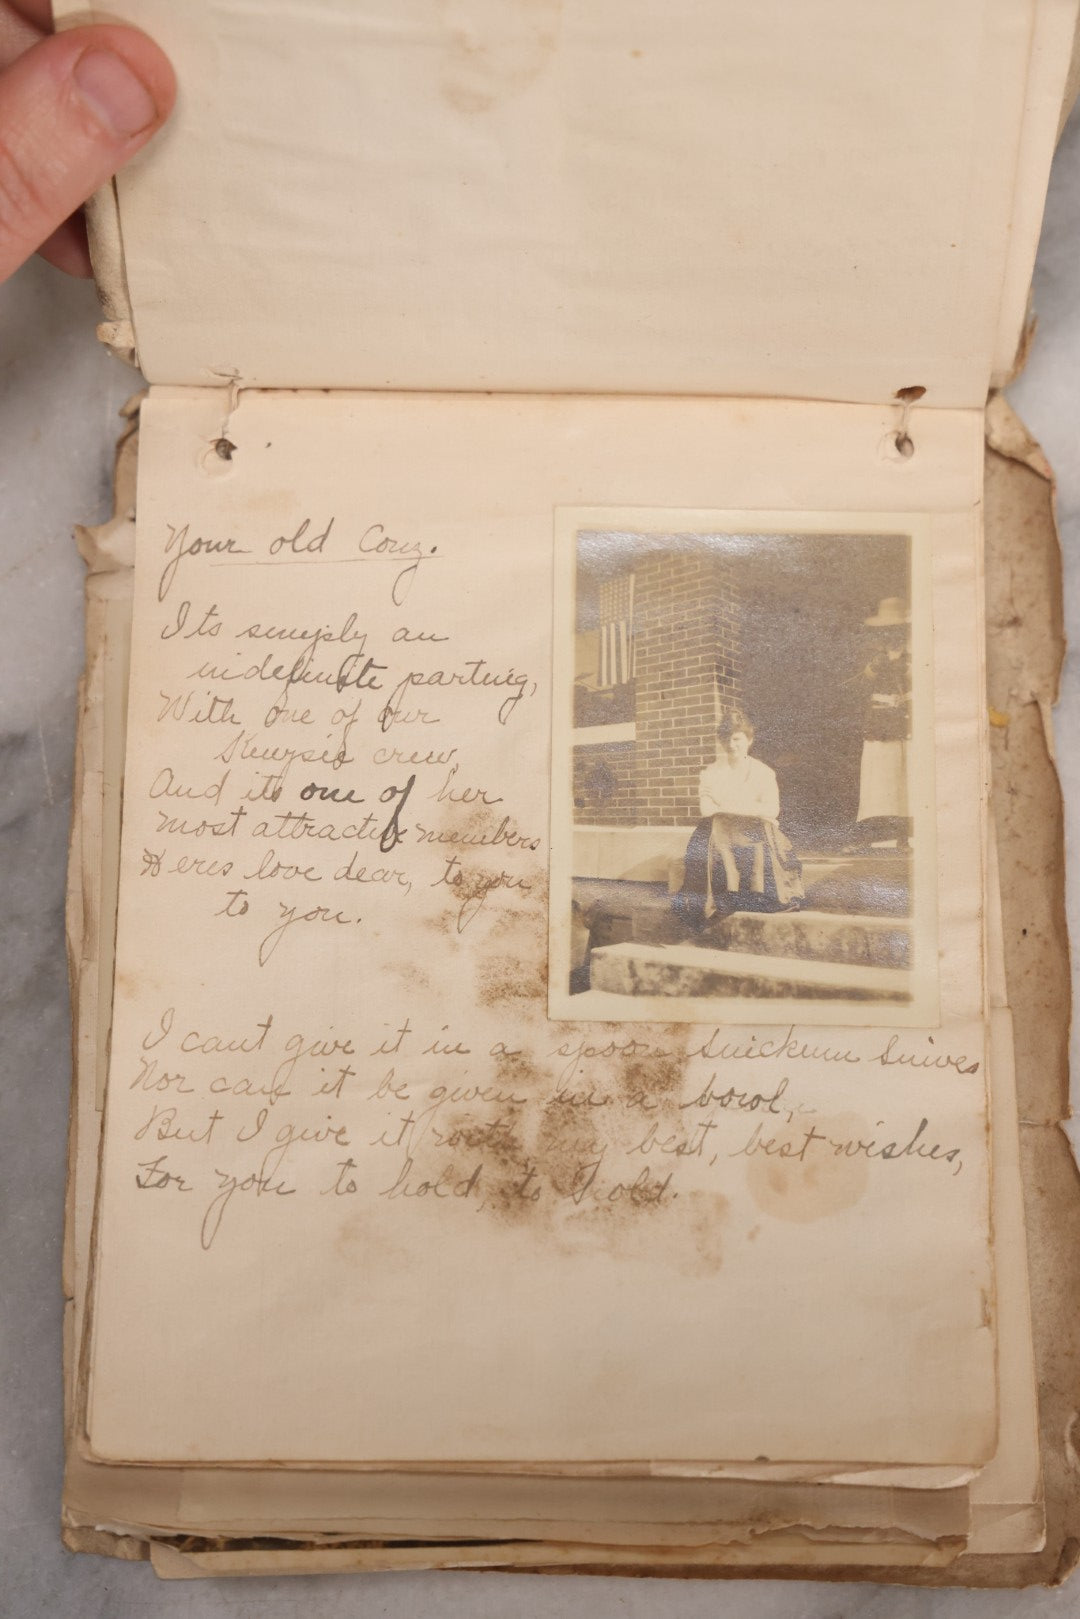 Your old Couz.
Its simply an
indefinite parting,
With one of our
crew,
And its one of her
most attractive members
Heres love dear, to you
to you.
I cant give it in a spoon
Nor can it be given in a bowl,
But I give it with my best, best wishes,
For you to hold, to hold.